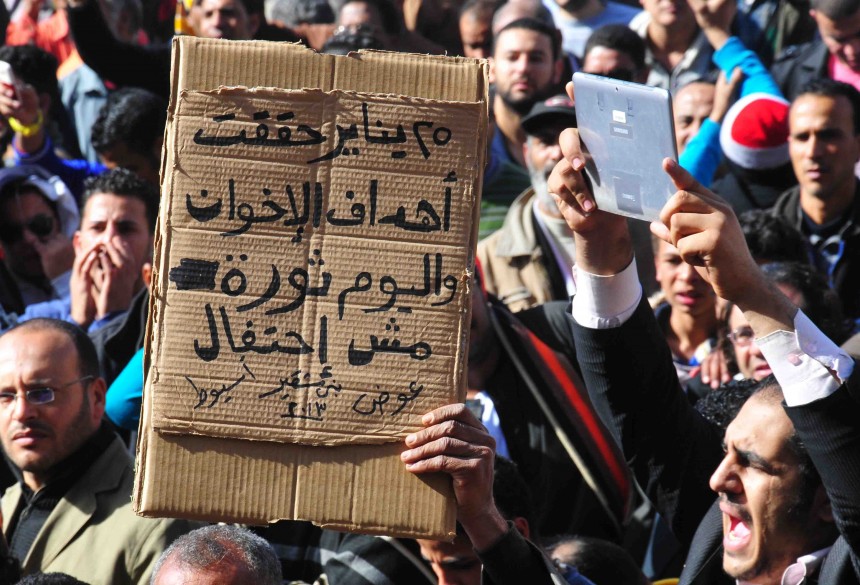 ٢٥ يناير حققت
أهداف الإخوان
واليوم ثورة
مش إحتفال
عوض بني شقير اسيوط
٢٠١٣